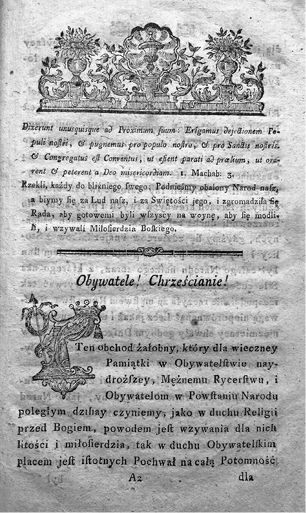 Dixerunt unusquisque ad Proximum suum: Erigamus dejectionem Po-
puli nostri, & pugnemus pro populo nostro, & pro Sanctis nostris.
& Congregatus est Conventus, ut essent parati ad prælium, ut ora-
rent & peterent a Deo misericordiam. 1. Machab: 3.
Rzekli, każdy do bliźniego swego: Podnieśmy obalony Naród nasz,
a biymy się za Lud nasz, i za Świętości jego, i zgromadziła się
Rada, aby gotowemi byli wszyscy na woynę, aby się modli-
li, i wzywali Miłosierdzia Boskiego.
Obywatele! Chrześcianie!
Ten obchod żałobny, który dla wieczney
Pamiątki w Obywatelstwie nay-
droższey, Mężnemu Rycerstwu, i
Obywatelom w Powstaniu Narodu
poległym dzisiay czyniemy, jako w duchu Religii
przed Bogiem, powodem jest wzywania dla nich
litości i miłosierdzia, tak w duchu Obywatelskim
placem jest istotnych Pochwał na całą Potomność
A2 dla